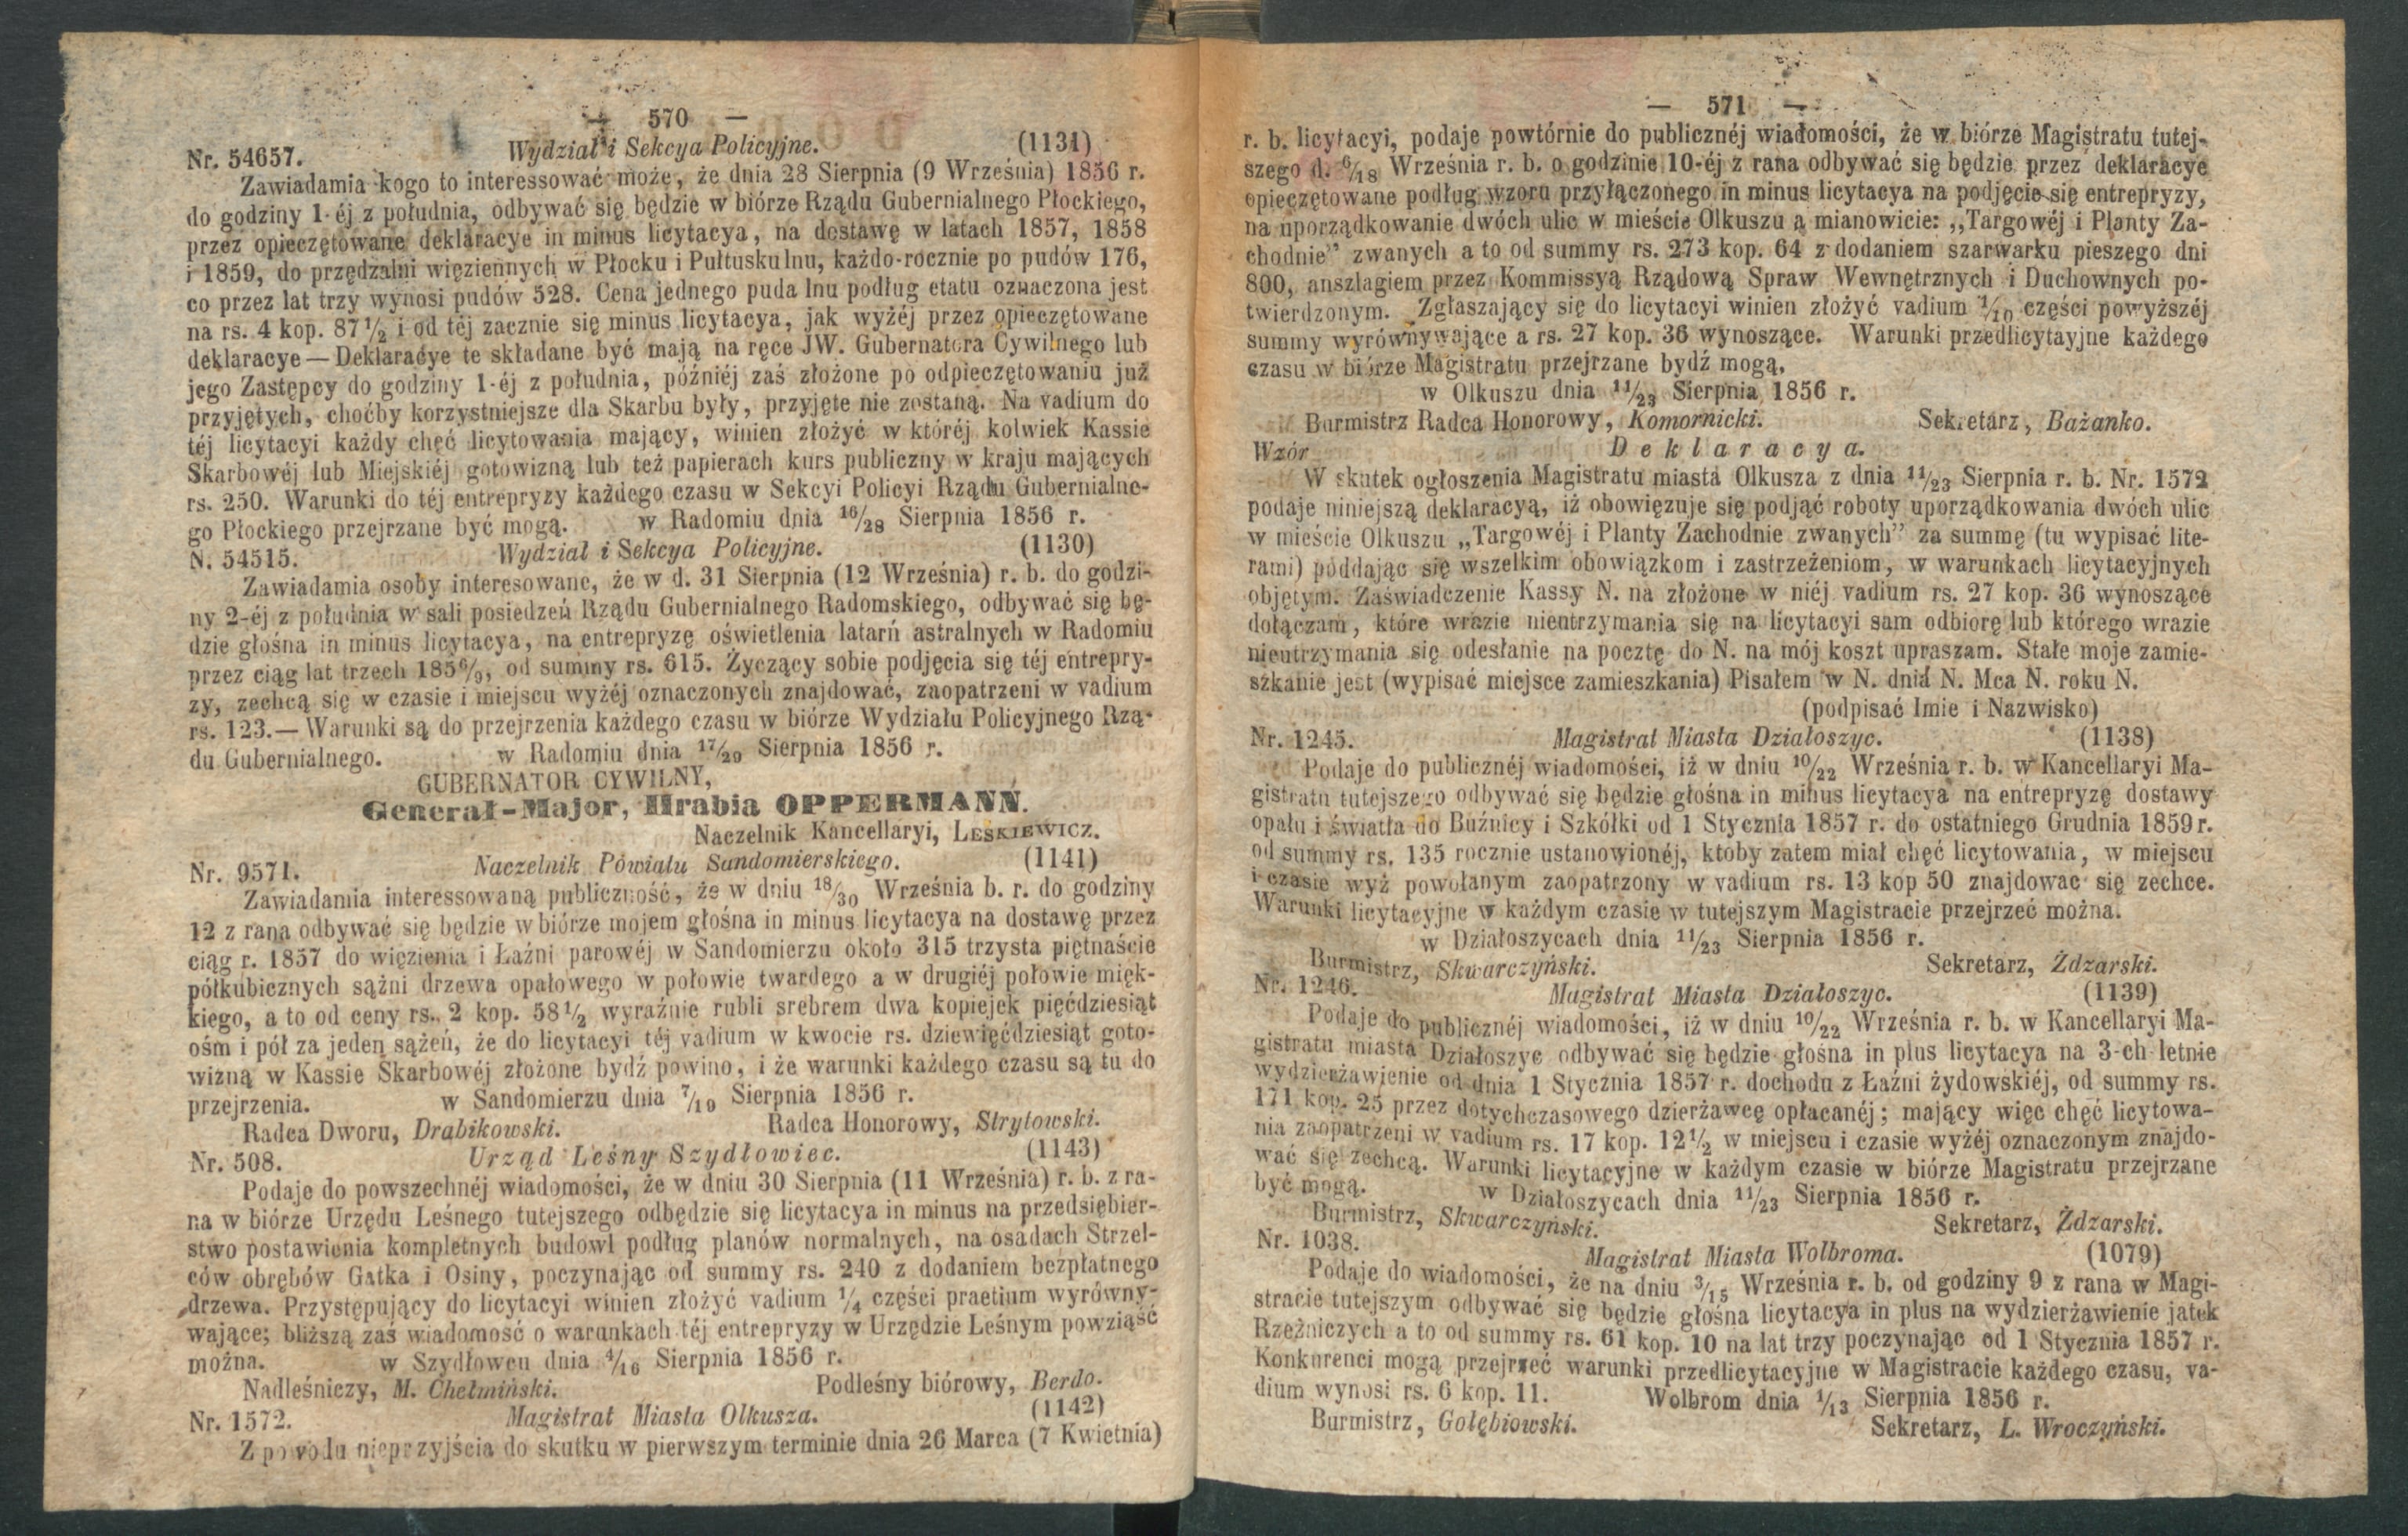 — 570 —
Nr. 54657. Wydział i Sekcya Policyjne. (1131)
Zawiadamia kogo to interessować może, że dnia 28 Sierpnia (9 Września) 1856 r.
do godziny 1-éj z południa, odbywać się będzie w biórze Rządu Gubernialnego Płockiego,
przez opieczętowane deklaracye in minus licytacya, na dostawę w latach 1857, 1858
i 1859, do przędzalni więziennych w Płocku i Pułtusku lnu, każdo-rocznie po pudów 176,
co przez lat trzy wynosi pudów 528. Cena jednego puda lnu podług etatu oznaczona jest
na rs. 4 kop. 87½ i od téj zacznie się minus licytacya, jak wyżéj przez opieczętowane
deklaracye — Deklaracye te składane być mają na ręce JW. Gubernatora Cywilnego lub
jego Zastępcy do godziny 1-éj z południa, późniéj zaś złożone po odpieczętowaniu już
przyjętych, choćby korzystniejsze dla Skarbu były, przyjęte nie zostaną. Na vadium do
téj licytacyi każdy chęć licytowania mający, winien złożyć w któréj kolwiek Kassie
Skarbowéj lub Miejskiéj gotowizną lub też papierach kurs publiczny w kraju mających
rs. 250. Warunki do téj entrepryzy każdego czasu w Sekcyi Policyi Rządu Gubernialne-
go Płockiego przejrzane być mogą. w Radomiu dnia 16/28 Sierpnia 1856 r.
N. 54515. Wydział i Sekcya Policyjne. (1130)
Zawiadamia osoby interesowane, że w d. 31 Sierpnia (12 Września) r. b. do godzi-
ny 2-éj z południa w sali posiedzeń Rządu Gubernialnego Radomskiego, odbywać się bę-
dzie głośna in minus licytacya, na entrepryzę oświetlenia latarń astralnych w Radomiu
przez ciąg lat trzech 1856/9, od summy rs. 615. Życzący sobie podjęcia się téj entrepry-
zy, zechcą się w czasie i miejscu wyżéj oznaczonych znajdować, zaopatrzeni w vadium
rs. 123.— Warunki są do przejrzenia każdego czasu w biórze Wydziału Policyjnego Rzą-
du Gubernialnego. w Radomiu dnia 17/29 Sierpnia 1856 r.
GUBERNATOR CYWILNY,
Generał-Major, Hrabia OPPERMANN.
Naczelnik Kancellaryi, LESKIEWICZ.
Nr. 9571. Naczelnik Powiatu Sandomierskiego. (1141)
Zawiadamia interessowaną publiczność, że w dniu 18/30 Września b. r. do godziny
12 z rana odbywać się będzie w biórze mojem głośna in minus licytacya na dostawę przez
ciąg r. 1857 do więzienia i Łaźni parowéj w Sandomierzu około 315 trzysta piętnaście
półkubicznych sążni drzewa opałowego w połowie twardego a w drugiéj połowie mięk-
kiego, a to od ceny rs. 2 kop. 58½ wyraźnie rubli srebrem dwa kopiejek pięćdziesiąt
ośm i pół za jeden sążeń, że do licytacyi téj vadium w kwocie rs. dziewięćdziesiąt goto-
wizną w Kassie Skarbowéj złożone bydź powino, i że warunki każdego czasu są tu do
przejrzenia. w Sandomierzu dnia 7/19 Sierpnia 1856 r.
Radca Dworu, Drabikowski. Radca Honorowy, Strytowski.
Nr. 508. Urząd Leśny Szydłowiec. (1143)
Podaje do powszechnéj wiadomości, że w dniu 30 Sierpnia (11 Września) r. b. z ra-
na w biórze Urzędu Leśnego tutejszego odbędzie się licytacya in minus na przedsiębier-
stwo postawienia kompletnych budowl podług planów normalnych, na osadach Strzel-
ców obrębów Gatka i Osiny, poczynając od summy rs. 240 z dodaniem bezpłatnego
drzewa. Przystępujący do licytacyi winien złożyć vadium ¼ części praetium wyrówny-
wające; bliższą zaś wiadomość o warunkach téj entrepryzy w Urzędzie Leśnym powziąść
można. w Szydłowcu dnia 4/16 Sierpnia 1856 r.
Nadleśniczy, M. Chełmiński. Podleśny biórowy, Berdo.
Nr. 1572. Magistrat Miasta Olkusza. (1142)
Z powodu nieprzyjścia do skutku w pierwszym terminie dnia 26 Marca (7 Kwietnia)
— 571 —
r. b. licytacyi, podaje powtórnie do publicznéj wiadomości, że w biórze Magistratu tutej-
szego d. 6/18 Września r. b. o godzinie 10-éj z rana odbywać się będzie przez deklaracye
opieczętowane podług wzoru przyłączonego in minus licytacya na podjęcie się entrepryzy,
na uporządkowanie dwóch ulic w mieście Olkuszu a mianowicie: „Targowéj i Planty Za-
chodnie" zwanych a to od summy rs. 273 kop. 64 z dodaniem szarwarku pieszego dni
800, anszlagiem przez Kommissyą Rządową Spraw Wewnętrznych i Duchownych po-
twierdzonym. Zgłaszający się do licytacyi winien złożyć vadium 1/10 części powyższéj
summy wyrównywające a rs. 27 kop. 36 wynoszące. Warunki przedlicytayjne każdego
czasu w biórze Magistratu przejrzane bydź mogą.
w Olkuszu dnia 11/23 Sierpnia 1856 r.
Burmistrz Radca Honorowy, Komornicki. Sekretarz, Bażanko.
Wzór Deklaracya.
W skutek ogłoszenia Magistratu miasta Olkusza z dnia 11/23 Sierpnia r. b. Nr. 1572
podaje niniejszą deklaracyą, iż obowięzuje się podjąć roboty uporządkowania dwóch ulic
w mieście Olkuszu „Targowéj i Planty Zachodnie zwanych" za summę (tu wypisać lite-
rami) poddając się wszelkim obowiązkom i zastrzeżeniom, w warunkach licytacyjnych
objętym. Zaświadczenie Kassy N. na złożone w niéj vadium rs. 27 kop. 36 wynoszące
dołączam, które wrazie nieutrzymania się na licytacyi sam odbiorę lub którego wrazie
nieutrzymania się odesłanie na pocztę do N. na mój koszt upraszam. Stałe moje zamie-
szkanie jest (wypisać miejsce zamieszkania) Pisałem w N. dnia N. Mca N. roku N.
(podpisać Imie i Nazwisko)
Nr. 1245. Magistrat Miasta Działoszyc. (1138)
Podaje do publicznéj wiadomości, iż w dniu 10/22 Września r. b. w Kancellaryi Ma-
gistratu tutejszego odbywać się będzie głośna in minus licytacya na entrepryzę dostawy
opału i światła do Buźnicy i Szkółki od 1 Stycznia 1857 r. do ostatniego Grudnia 1859 r.
od summy rs. 135 rocznie ustanowionéj, ktoby zatem miał chęć licytowania, w miejscu
i czasie wyż powołanym zaopatrzony w vadium rs. 13 kop 50 znajdowac się zechce.
Warunki licytacyjne w każdym czasie w tutejszym Magistracie przejrzeć można.
w Działoszycach dnia 11/23 Sierpnia 1856 r.
Burmistrz, Skwarczyński. Sekretarz, Żdzarski.
Nr. 1246. Magistrat Miasta Działoszyc. (1139)
Podaje do publicznéj wiadomości, iż w dniu 10/22 Września r. b. w Kancellaryi Ma-
gistratu miasta Działoszyc odbywać się będzie głośna in plus licytacya na 3-ch letnie
wydzierżawienie od dnia 1 Stycznia 1857 r. dochodu z Łaźni żydowskiéj, od summy rs.
171 kop. 25 przez dotychczasowego dzierżawcę opłacanéj; mający więc chęć licytowa-
nia zaopatrzeni w vadium rs. 17 kop. 12½ w miejscu i czasie wyżéj oznaczonym znajdo-
wać się zechcą. Warunki licytacyjne w każdym czasie w biórze Magistratu przejrzane
być mogą. w Działoszycach dnia 11/23 Sierpnia 1856 r.
Burmistrz, Skwarczyński. Sekretarz, Żdzarski.
Nr. 1038. Magistrat Miasta Wolbroma. (1079)
Podaje do wiadomości, że na dniu 3/15 Września r. b. od godziny 9 z rana w Magi-
stracie tutejszym odbywać się będzie głośna licytacya in plus na wydzierżawienie jatek
Rzeźniczych a to od summy rs. 61 kop. 10 na lat trzy poczynając od 1 Stycznia 1857 r.
Konkurenci mogą przejrzeć warunki przedlicytacyjne w Magistracie każdego czasu, va-
dium wynosi rs. 6 kop. 11. Wolbrom dnia 1/13 Sierpnia 1856 r.
Burmistrz, Gołębiowski. Sekretarz, L. Wroczyński.